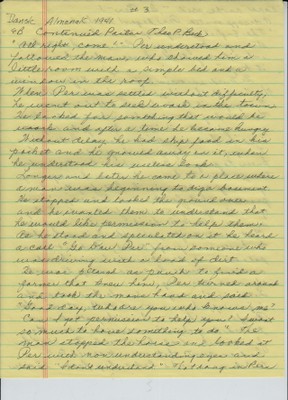 # 3
Dansk Almanak 1941
4B Continued Pastor Theo. P. Beck
"All right, come!" Per understood and
followed the man, who showed him a
little room with a simple bed and a
window in the roof.
When Per was settled without difficulty,
he went out to seek work in the town.
He looked for something that would be
work and after a time he became hungry
Without delay he had stop food in his
pocket and he would under it, when
he understood his
Longer and later he came to a place where
a man was beginning to dig a basement.
He stopped and looked the ground over
and he wanted them to understand that
he would like permission to help them.
As he stood and speculated on it he heard
a call "Go Daw Per" from someone who
was driving with a load of dirt.
So was pleased as punch to find a
farmer that knew him, Per turned around
and took the man's hand and said
"Good day, who are you who knows me?
Can I get permission to help you? I want
so much to have something to do." The
man stopped the horses and looked at
Per with non understanding eyes and
said "I don't understand"